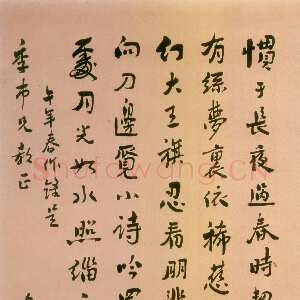 慣于長夜過春時
有絲夢裏依稀慈
幻大王旗忍看朋
向刀邊覓小詩吟
處月光如水照緇
午年春作録呈
季市兄教正
Shufawang.CN